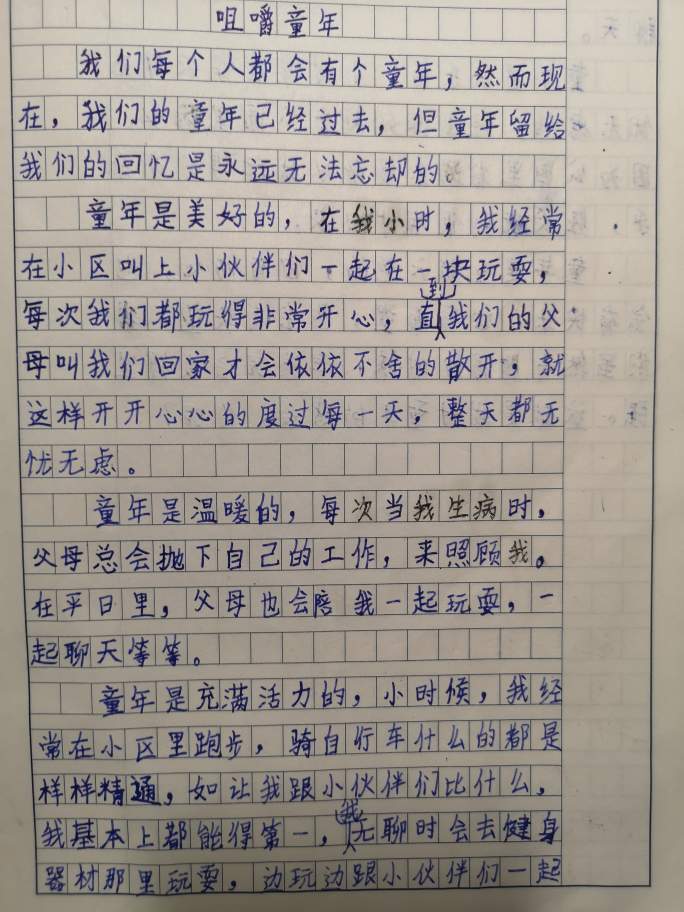 咀嚼童年
我们每个人都会有个童年，然而现
在，我们的童年已经过去，但童年留给
我们的回忆是永远无法忘却的。
童年是美好的，在我小时，我经常
在小区叫上小伙伴们一起在一块玩耍，
每次我们都玩得非常开心，直到我们的父
母叫我们回家才会依依不舍的散开，就
这样开开心心的度过每一天，整天都无
忧无虑。
童年是温暖的，每次当我生病时，
父母总会抛下自己的工作，来照顾我。
在平日里，父母也会陪我一起玩耍，一
起聊天等等。
童年是充满活力的，小时候，我经
常在小区里跑步，骑自行车什么的都是
样样精通，如让我跟小伙伴们比什么，
我基本上都能得第一，我无聊时会去健身
器材那里玩耍，边玩边跟小伙伴们一起